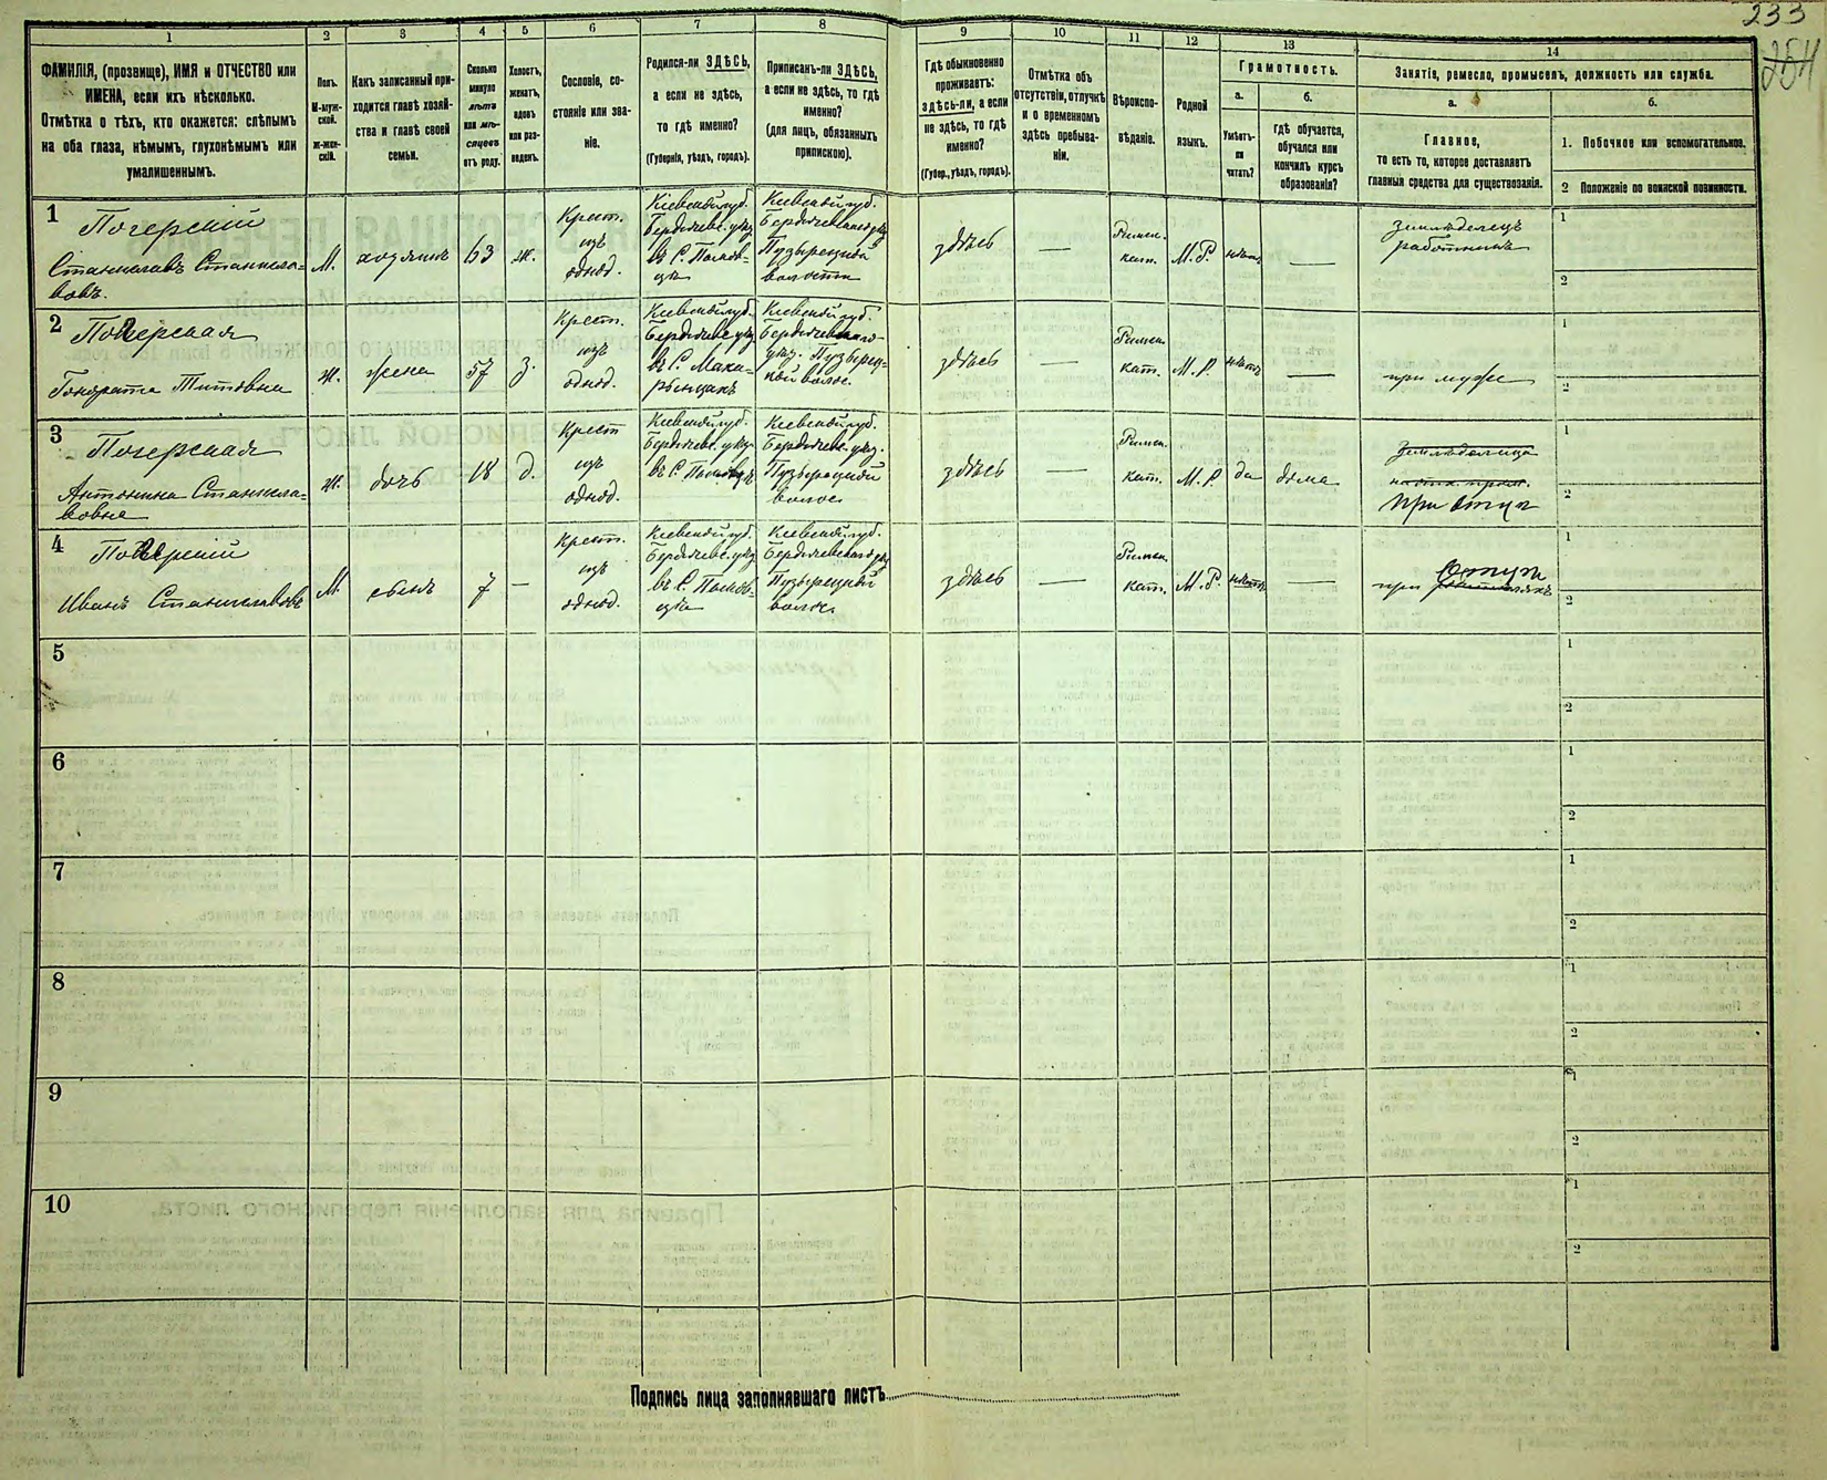 233
254
1
2
3
4
5
6
7
8
9
10
11
12
13
14
ФАМИЛІЯ, (прозвище), ИМЯ и ОТЧЕСТВО или
ИМЕНА, если ихъ нѣсколько.
Отмѣтка о тѣхъ, кто окажется: слѣпымъ
на оба глаза, нѣмымъ, глухонѣмымъ или
умалишеннымъ.
Полъ.
М-муж-
ской.
ж-жен-
скій.
Какъ записанный при-
ходится главѣ хозяй-
ства и главѣ своей
семьи.
Сколько
минуло
лѣтъ
или мѣ-
сяцевъ
отъ роду.
Холостъ,
женатъ,
вдовъ
или раз-
веденъ.
Сословіе, со-
стояніе или зва-
ніе.
Родился-ли ЗДѢСЬ,
а если не здѣсь,
то гдѣ именно?
(Губернія, уѣздъ, городъ).
Приписанъ-ли ЗДѢСЬ,
а если не здѣсь, то гдѣ
именно?
(для лицъ, обязанныхъ
припискою).
Гдѣ обыкновенно
проживаетъ:
здѣсь-ли, а если
не здѣсь, то гдѣ
именно?
(Губер., уѣздъ, городъ).
Отмѣтка объ
отсутствіи, отлучкѣ
и о временномъ
здѣсь пребыва-
ніи.
Вѣроиспо-
вѣданіе.
Родной
языкъ.
Грамотность.
а.
Умѣетъ-
ли
читать?
б.
гдѣ обучается,
обучался или
кончилъ курсъ
образованія?
Занятіе, ремесло, промыселъ, должность или служба.
а.
Главное,
то есть то, которое доставляетъ
главныя средства для существованія.
б.
1. Побочное или вспомогательное.
2 Положеніе по воинской повинности.
1
Станиславъ Станисла-
вовъ.
М.
хозяинъ
63
ж.
Крест.
изъ
однод.
Кіевской губ.
Бердичевс. уѣз.
Кіевской губ.
волости
здѣсь
—
Римск.
кат.
М. Р.
нѣтъ
—
земледелецъ
работникъ
1
2
2
Гонората Титовна
ж.
жена
57
з.
Крест.
изъ
однод.
Кіевской губ.
Бердичевс. уѣз.
Кіевской губ.
здѣсь
—
Римск.
кат.
М. Р.
нѣтъ
—
при муже
1
2
3
Антонина Станисла-
вовна
ж.
дочь
18
д.
Крест
изъ
однод.
Кіевской губ.
Бердичевс. уѣз.
Кіевской губ.
Бердичевс. уѣз.
волос.
здѣсь
—
Римск.
кат.
М. Р.
да
дома
При отцѣ
1
2
4
Иванъ Станиславовъ
М.
сынъ
7
—
Крест.
изъ
однод.
Кіевской губ.
Бердичевс. уѣз.
Кіевской губ.
волос.
здѣсь
—
Римск.
кат.
М. Р.
нѣтъ
—
при отцѣ
1
2
5
1
2
6
1
2
7
1
2
8
1
2
9
1
2
10
1
2
Подпись лица заполнявшаго листъ